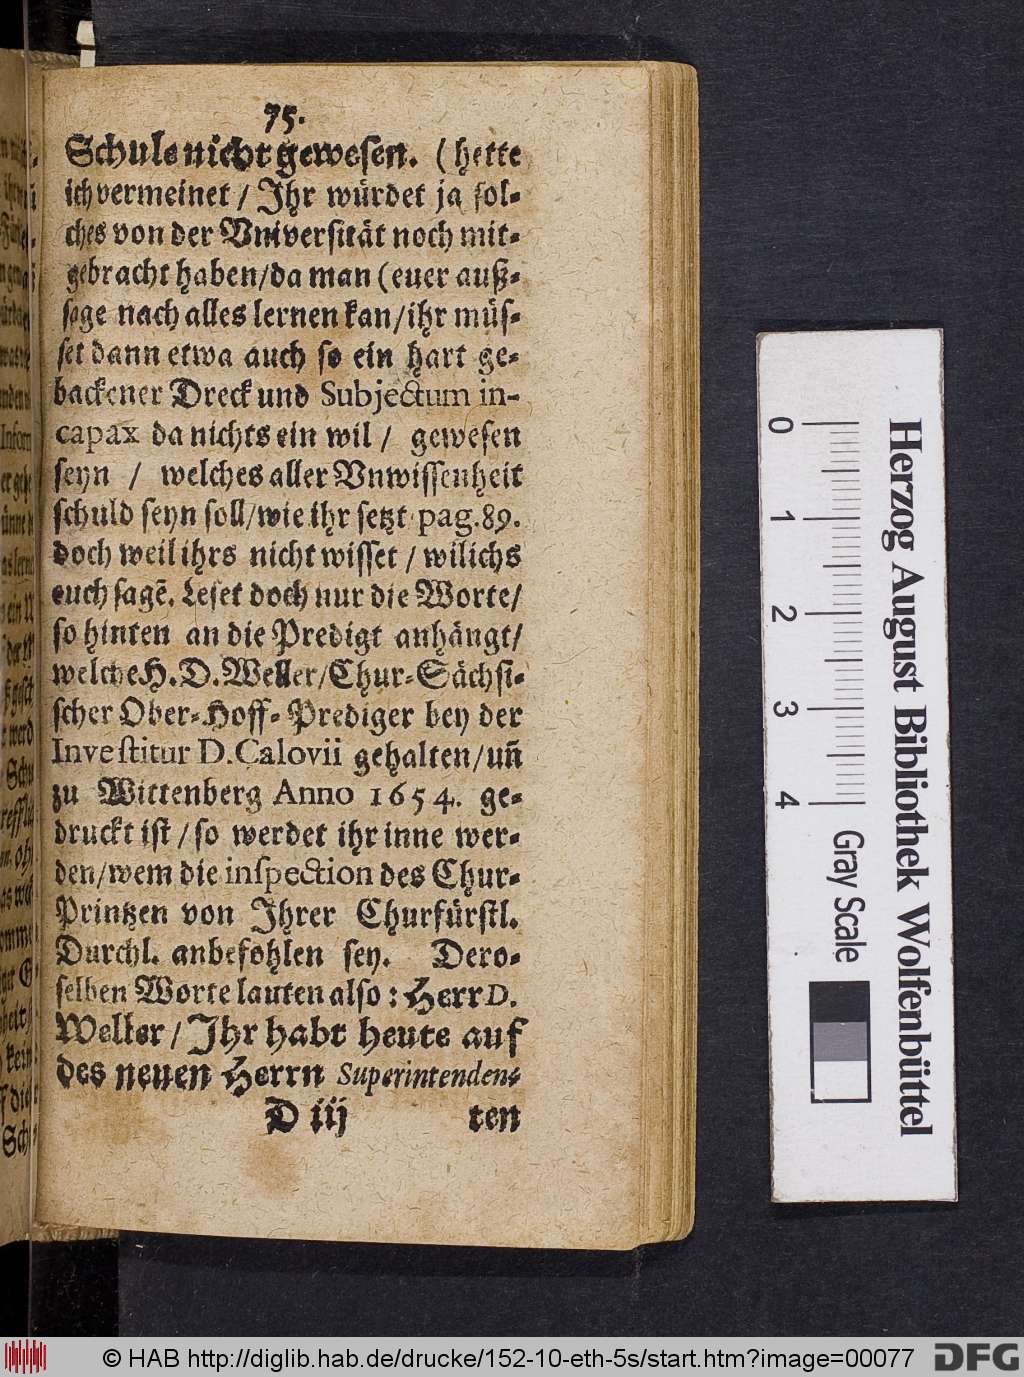 75.
Schule nicht gewesen. (hette
ich vermeinet / Ihr würdet ja sol-
ches von der Vniversität noch mit-
gebracht haben/da man (euer auß-
sage nach alles lernen kan/ihr müs-
set dann etwa auch so ein hart ge-
backener Dreck und Subjectum in-
capax da nichts ein wil / gewesen
seyn / welches aller Vnwissenheit
schuld seyn soll/wie ihr setzt pag.89.
doch weil ihrs nicht wisset / wil ichs
euch sagē. Leset doch nur die Worte/
so hinten an die Predigt anhängt/
welche H. D. Weller/Chur-Sächsi-
scher Ober-Hoff-Prediger bey der
Investitur D. Calovii gehalten/uñ
zu Wittenberg Anno 1654. ge-
druckt ist / so werdet ihr inne wer-
den/wem die inspection des Chur-
Printzen von Ihrer Churfürstl.
Durchl. anbefohlen sey. Dero-
selben Worte lauten also: Herr D.
Weller / Ihr habt heute auf
des neuen Herrn Superinten­den-
D iij ten
0 1 2 3 4
Herzog August Bibliothek Wolfenbüttel
Gray Scale
© HAB http://diglib.hab.de/drucke/152-10-eth-5s/start.htm?image=00077
DFG